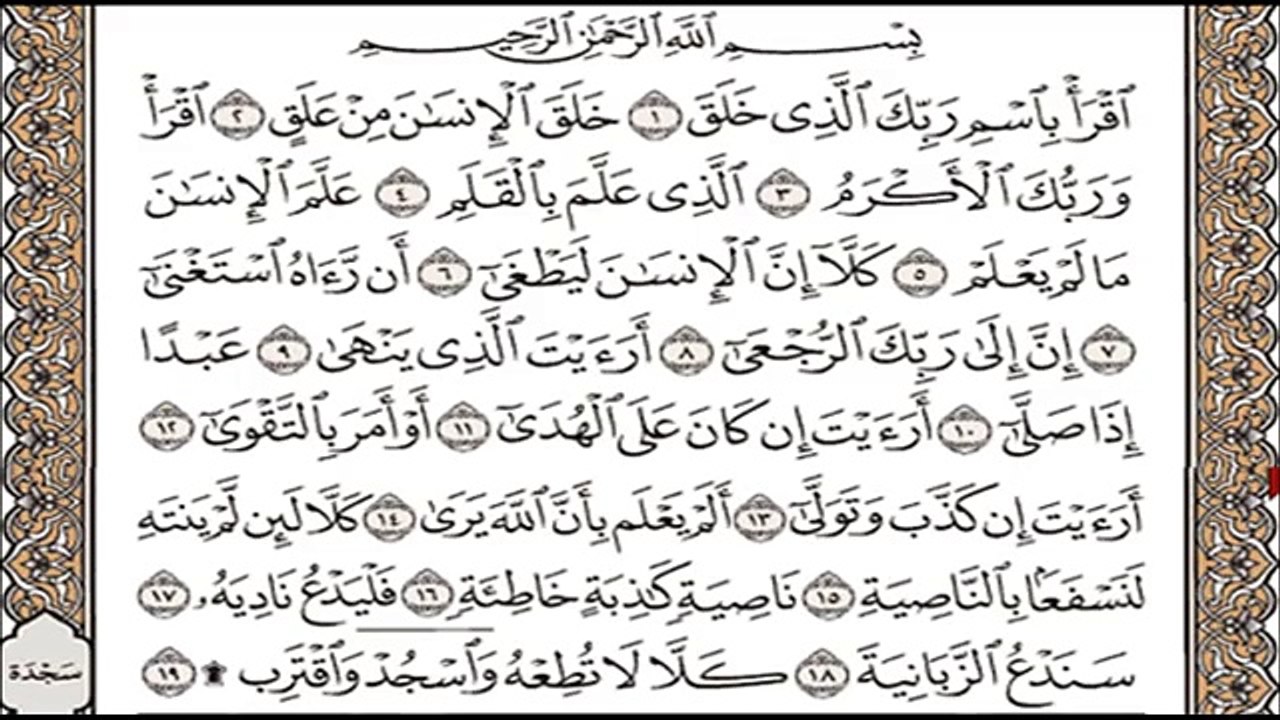 بِسْمِ ٱللَّهِ ٱلرَّحْمَـٰنِ ٱلرَّحِيمِ
ٱقْرَأْ بِٱسْمِ رَبِّكَ ٱلَّذِى خَلَقَ ١ خَلَقَ ٱلْإِنسَـٰنَ مِنْ عَلَقٍ ٢ ٱقْرَأْ
وَرَبُّكَ ٱلْأَكْرَمُ ٣ ٱلَّذِى عَلَّمَ بِٱلْقَلَمِ ٤ عَلَّمَ ٱلْإِنسَـٰنَ
مَا لَمْ يَعْلَمْ ٥ كَلَّآ إِنَّ ٱلْإِنسَـٰنَ لَيَطْغَىٰٓ ٦ أَن رَّءَاهُ ٱسْتَغْنَىٰٓ
٧ إِنَّ إِلَىٰ رَبِّكَ ٱلرُّجْعَىٰٓ ٨ أَرَءَيْتَ ٱلَّذِى يَنْهَىٰ ٩ عَبْدًا
إِذَا صَلَّىٰٓ ١٠ أَرَءَيْتَ إِن كَانَ عَلَى ٱلْهُدَىٰٓ ١١ أَوْ أَمَرَ بِٱلتَّقْوَىٰٓ ١٢
أَرَءَيْتَ إِن كَذَّبَ وَتَوَلَّىٰٓ ١٣ أَلَمْ يَعْلَم بِأَنَّ ٱللَّهَ يَرَىٰ ١٤ كَلَّا لَئِن لَّمْ يَنتَهِ
لَنَسْفَعًۢا بِٱلنَّاصِيَةِ ١٥ نَاصِيَةٍ كَـٰذِبَةٍ خَاطِئَةٍ ١٦ فَلْيَدْعُ نَادِيَهُۥ ١٧
سَنَدْعُ ٱلزَّبَانِيَةَ ١٨ كَلَّا لَا تُطِعْهُ وَٱسْجُدْ وَٱقْتَرِب ۩ ١٩
سَجْدَة